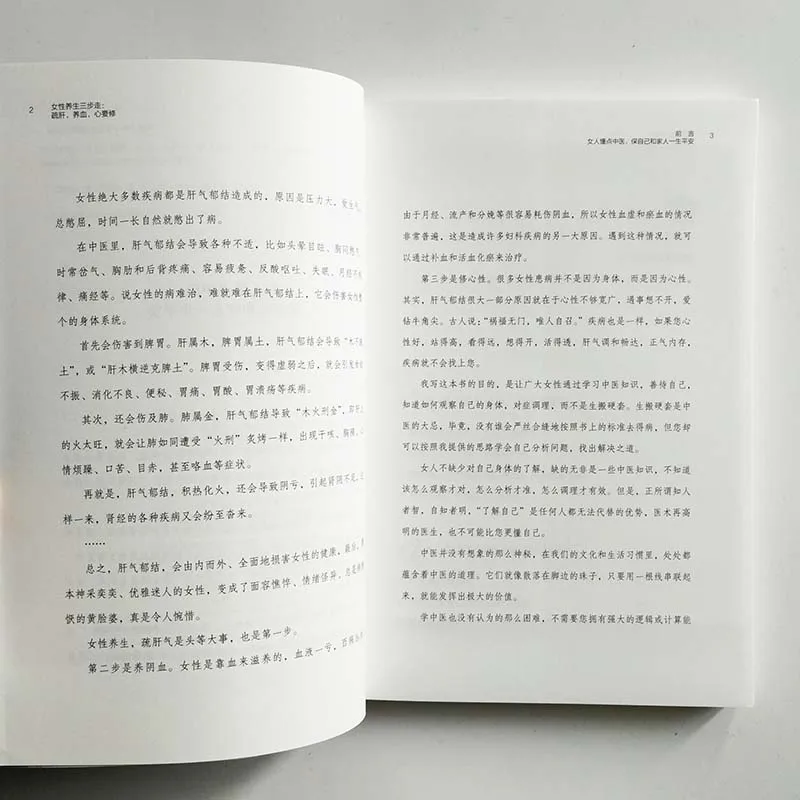 2
女性养生三步走：
疏肝，养血，心要修
女性绝大多数疾病都是肝气郁结造成的，原因是压力大，
总憋屈，时间一长自然就憋出了病。
在中医里，肝气郁结会导致各种不适，比如头晕目眩、胸闷
时常岔气、胸肋和后背疼痛、容易疲惫、反酸呕吐、失眠、月经不
律、痛经等。说女性的病难治，难就难在肝气郁结上，它会伤害女性
个的身体系统。
首先会伤害到脾胃。肝属木，脾胃属土，肝气郁结会导致“木不
土”，或“肝木横逆克脾土”。脾胃受伤，变得虚弱之后，就会引发
不振、消化不良、便秘、胃痛、胃酸、胃溃疡等疾病。
其次，还会伤及肺。肺属金，肝气郁结导致“木火刑金”，
的火太旺，就会让肺如同遭受“火刑”炙烤一样，出现干咳、胸
情烦躁、口苦、目赤，甚至咯血等症状。
再就是，肝气郁结，积热化火，还会导致阴亏，引起肾阴不足，
样一来，肾经的各种疾病又会纷至沓来。
……
总之，肝气郁结，会由内而外、全面地损害女性的健康，最后，
本神采奕奕、优雅迷人的女性，变成了面容憔悴、情绪怪异、总是
恹的黄脸婆，真是令人惋惜。
女性养生，疏肝气是头等大事，也是第一步。
第二步是养阴血。女性是靠血来滋养的，血液一亏，百病
前 言
女人懂点中医，保自己和家人一生平安
3
由于月经、流产和分娩等很容易耗伤阴血，所以女性血虚和瘀血的情况
非常普遍，这是造成许多妇科疾病的另一大原因。遇到这种情况，就可
以通过补血和活血化瘀来治疗。
第三步是修心性。很多女性患病并不是因为身体，而是因为心性。
其实，肝气郁结很大一部分原因就在于心性不够宽广，遇事想不开，爱
钻牛角尖。古人说：“祸福无门，唯人自召。”疾病也是一样，如果您心
性好，站得高，看得远，想得开，活得透，肝气调和畅达，正气内存，
疾病就不会找上您。
我写这本书的目的，是让广大女性通过学习中医知识，善待自己，
知道如何观察自己的身体，对症调理，而不是生搬硬套。生搬硬套是中
医的大忌，毕竟，没有谁会严丝合缝地按照书上的标准去得病，但您却
可以按照我提供的思路学会自己分析问题，找出解决之道。
女人不缺少对自己身体的了解，缺的无非是一些中医知识，不知道
该怎么观察才对，怎么分析才准，怎么调理才有效。但是，正所谓知人
者智，自知者明，“了解自己”是任何人都无法代替的优势，医术再高
明的医生，也不可能比您更懂自己。
中医并没有想象的那么神秘，在我们的文化和生活习惯里，处处都
蕴含着中医的道理。它们就像散落在脚边的珠子，只要用一根线串联起
来，就能发挥出极大的价值。
学中医也没有认为的那么困难，不需要您拥有强大的逻辑或计算能